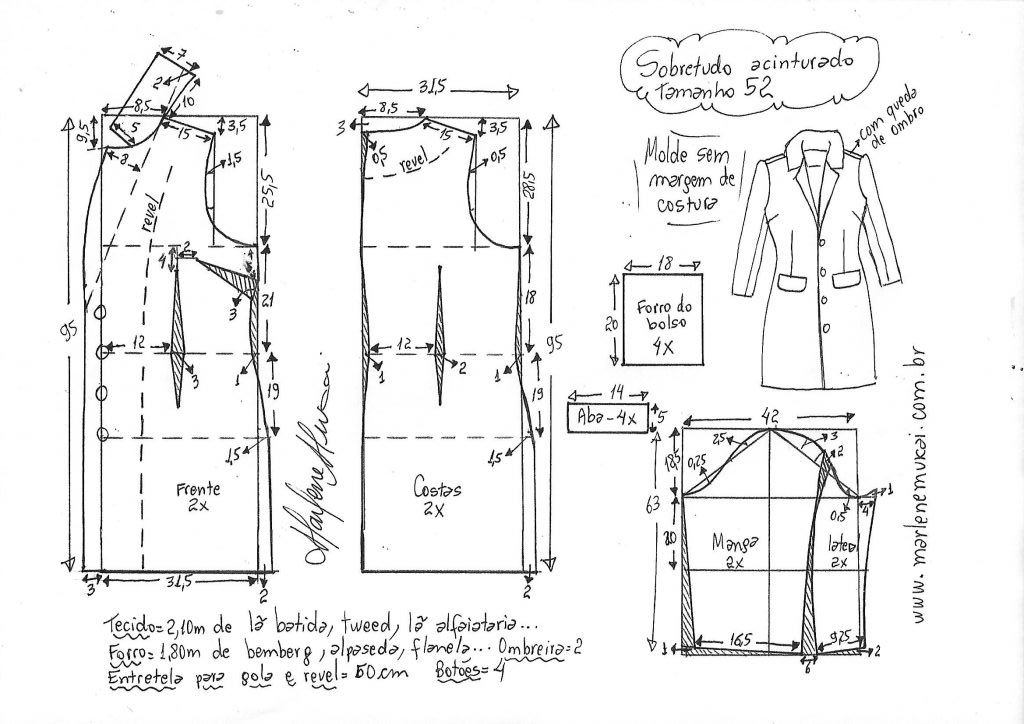 Sobretudo acinturado
Tamanho 52
com queda
de ombro
Molde sem
margem de
costura
7
2
10
8,5
9,5
5
8
15
3,5
1,5
25,5
revel
4
2
3
21
95
12
3
1
19
1,5
Frente
2x
3
31,5
2
31,5
8,5
3
0,5
revel
15
3,5
0,5
28,5
18
95
12
1
2
1
19
1,5
Costas
2x
2
18
20
Forro do
bolso
4x
14
Aba - 4x
5
42
2,5
3
2
18,5
0,25
63
1
4
0,5
20
Manga
2x
lateral
2x
16,5
9,25
1
6
2
www.marlenemukai.com.br
Tecido= 2,10m de lã batida, tweed, lã alfaiataria...
Forro= 1,80m de bemberg, alpaseda, flanela... Ombreira=2
Entretela para gola e revel= 50cm Botões= 4